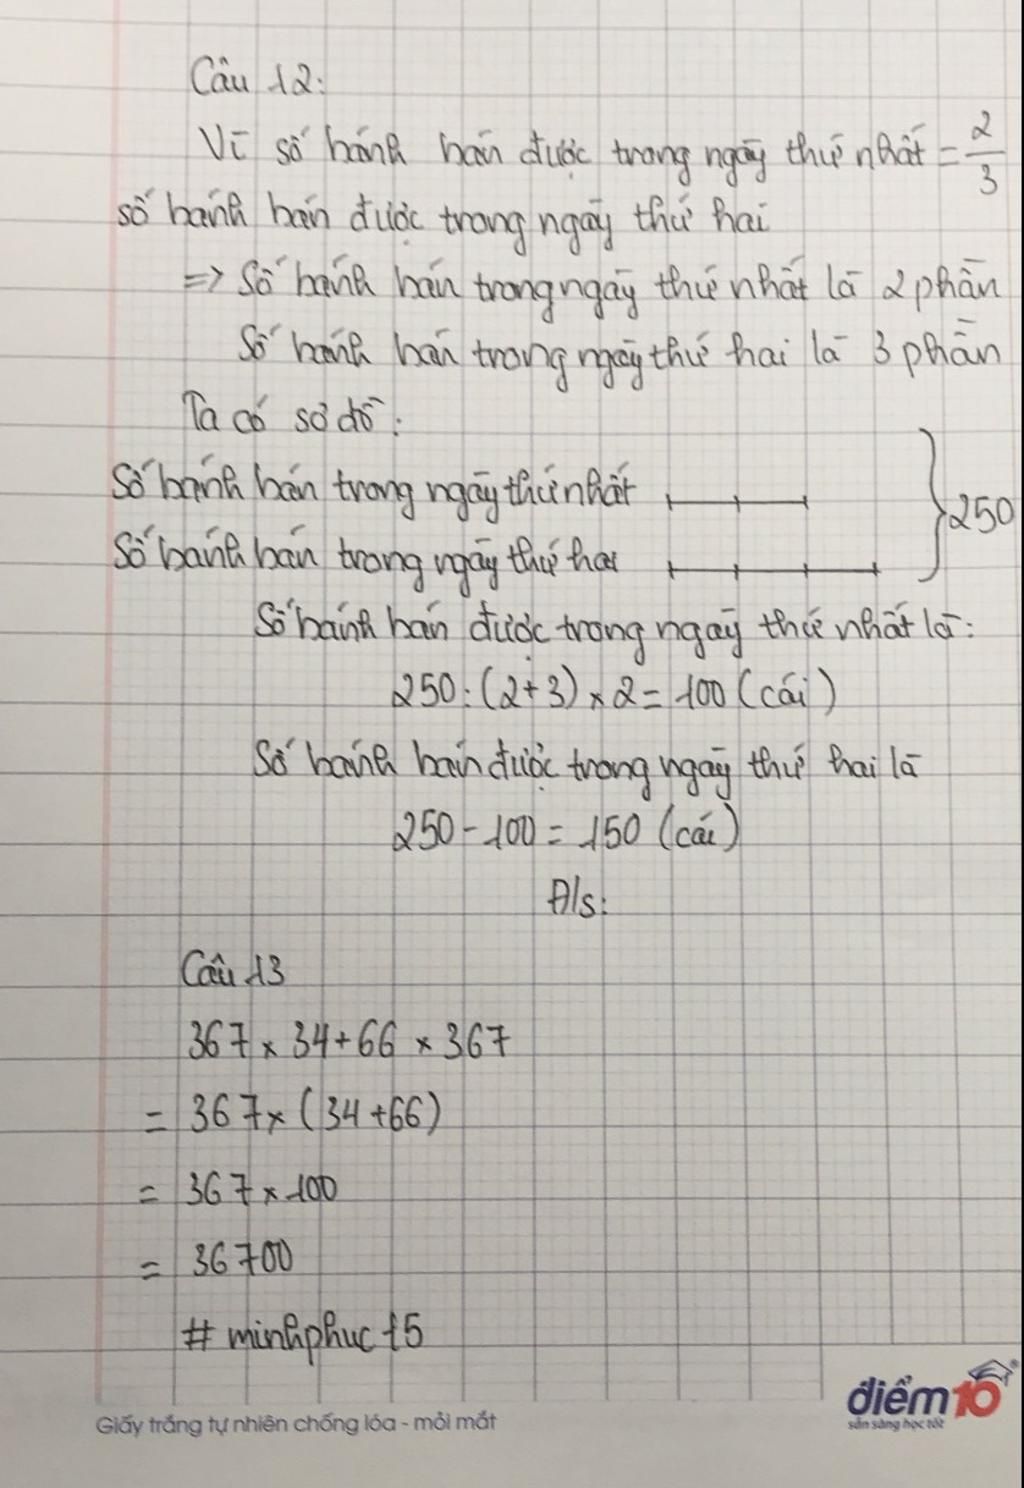 Câu 12:
Vì số bánh bán được trong ngày thứ nhất = 2/3
số bánh bán được trong ngày thứ hai
=> Số bánh bán trong ngày thứ nhất là 2 phần
Số bánh bán trong ngày thứ hai là 3 phần
Ta có sơ đồ:
Số bánh bán trong ngày thứ nhất
250
Số bánh bán trong ngày thứ hai
Số bánh bán được trong ngày thứ nhất là:
250:(2+3)×2=100 (cái)
Số bánh bán được trong ngày thứ hai là
250-100=150 (cái)
Đ/s:
Câu 13
367×34+66×367
= 367×(34+66)
= 367×100
= 36700
# minhphuc t5
điểm10
sẵn sàng học tốt
Giấy trắng tự nhiên chống lóa - mỏi mắt